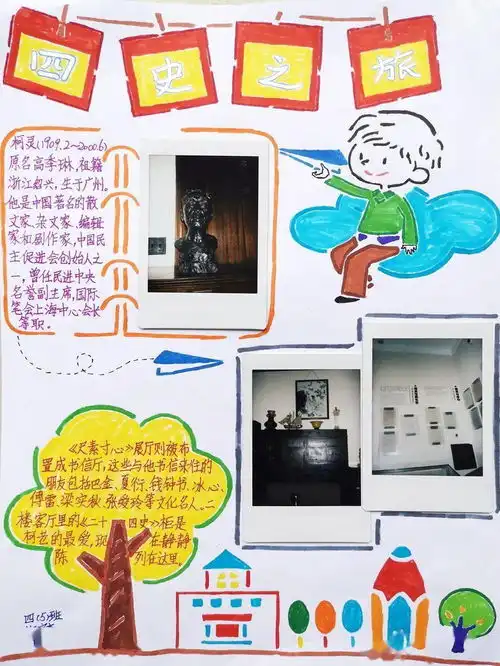 四史之旅
柯灵(1909.2~2000.6)
原名高季琳,祖籍
浙江绍兴,生于广州。
他是中国著名的散
文家、杂文家、编辑
家和剧作家,中国民
主促进会创始人之
一,曾任民进中央
名誉副主席,国际
笔会上海中心会长
等职。
《尺素寸心》展厅则被布
置成书信厅,这些与他书信来往的
朋友包括巴金、夏衍、钱钟书、冰心、
傅雷、梁实秋、张爱玲等文化名人。二
楼客厅里的《二十四史》柜是
柯老的最爱,现在静静
陈列在这里。
四(5)班